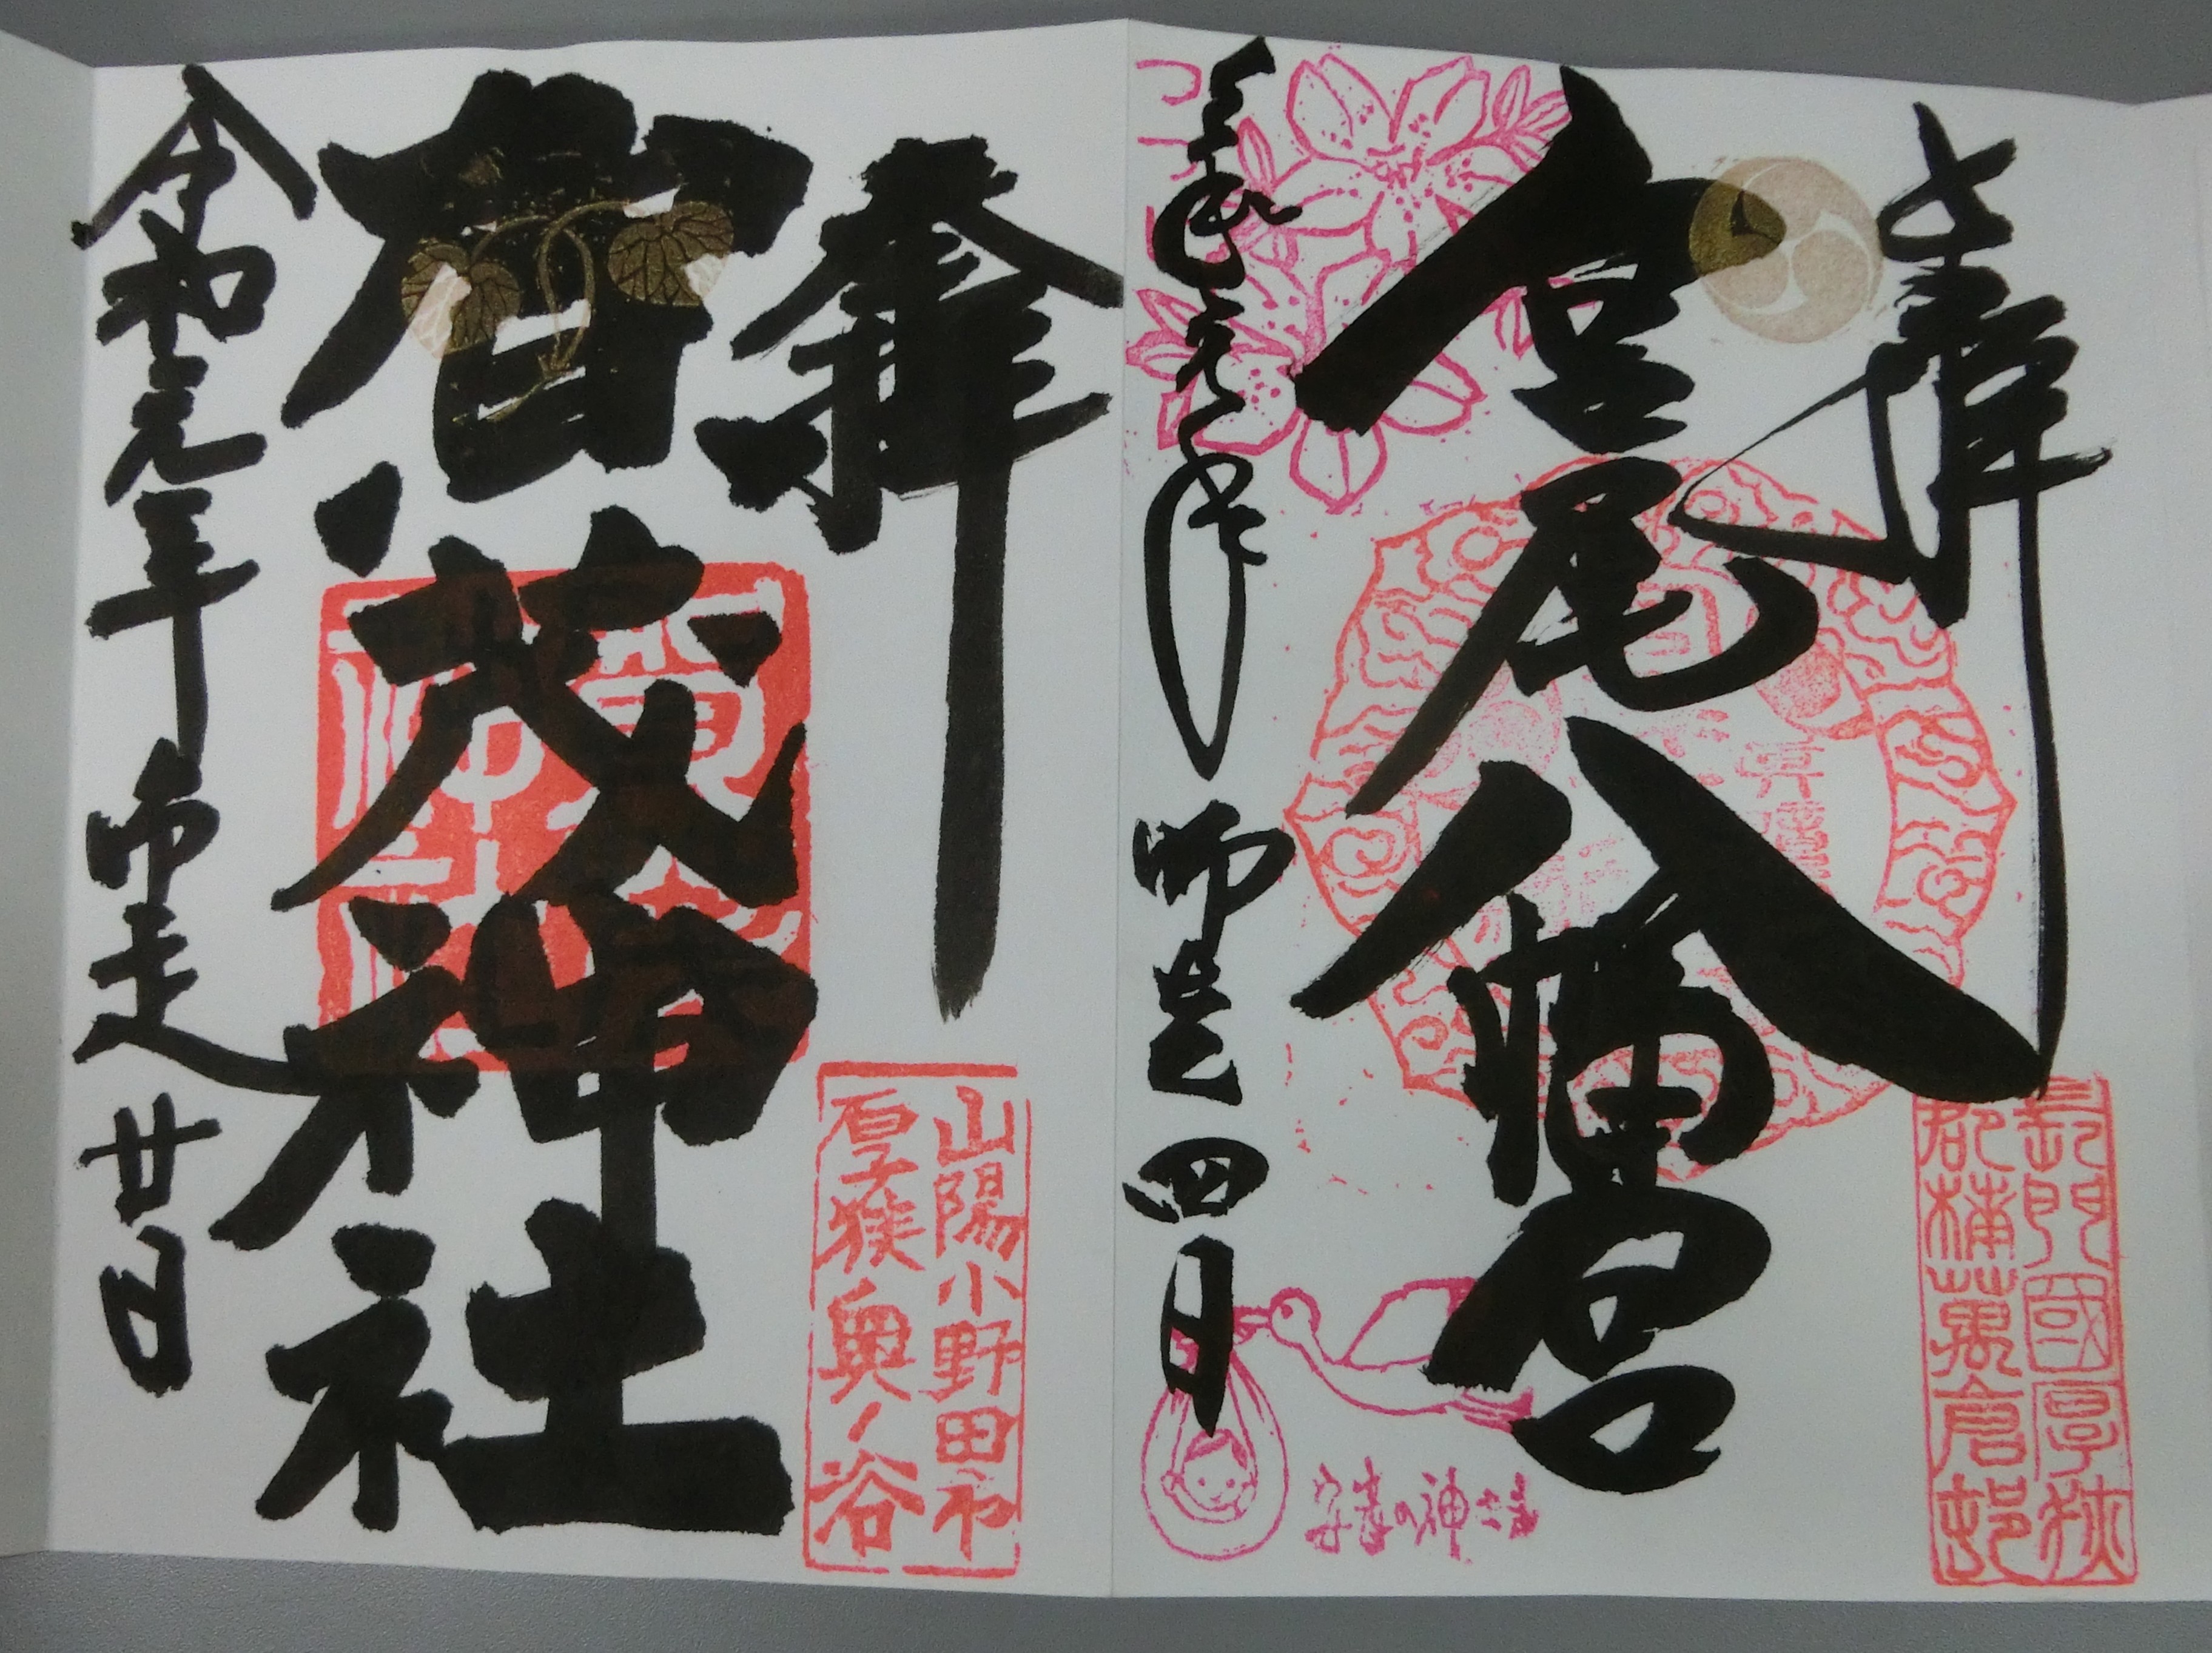 奉拝
宮尾八幡宮
令和元年師走四日
長門國厚狭
郡楠萬倉邨
安産の神さま
奉拝
賀茂神社
令和元年師走廿日
山陽小野田市
厚狭奥ノ谷